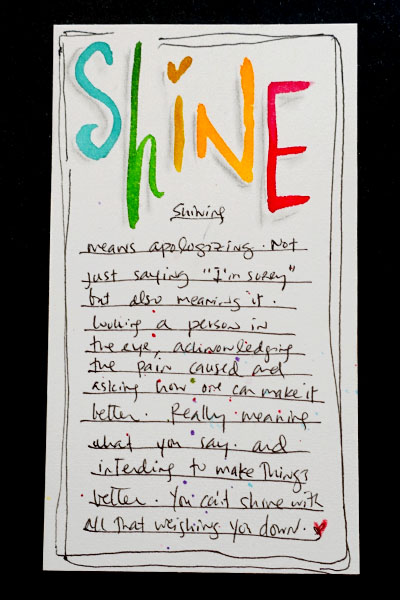 ShiNE
Shining
means apologizing. Not
just saying "I'm sorry"
but also meaning it.
Looking a person in
the eye, acknowledging
the pain caused and
asking how one can make it
better. Really meaning
what you say. and
intending to make things
better. You can't shine with
all that weighing you down.